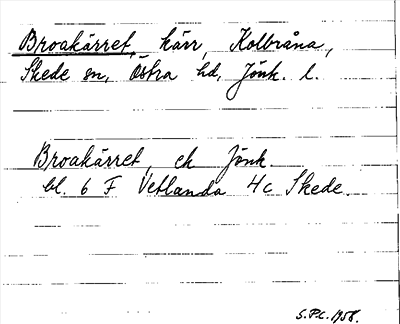 Broakärret, kärr, Kolbråna,
Skede sn, Östra hd, Jönk. l.
Broakärret, ek Jönk.
bl. 6 F Vetlanda 4c Skede.
S.P.C. 1958.